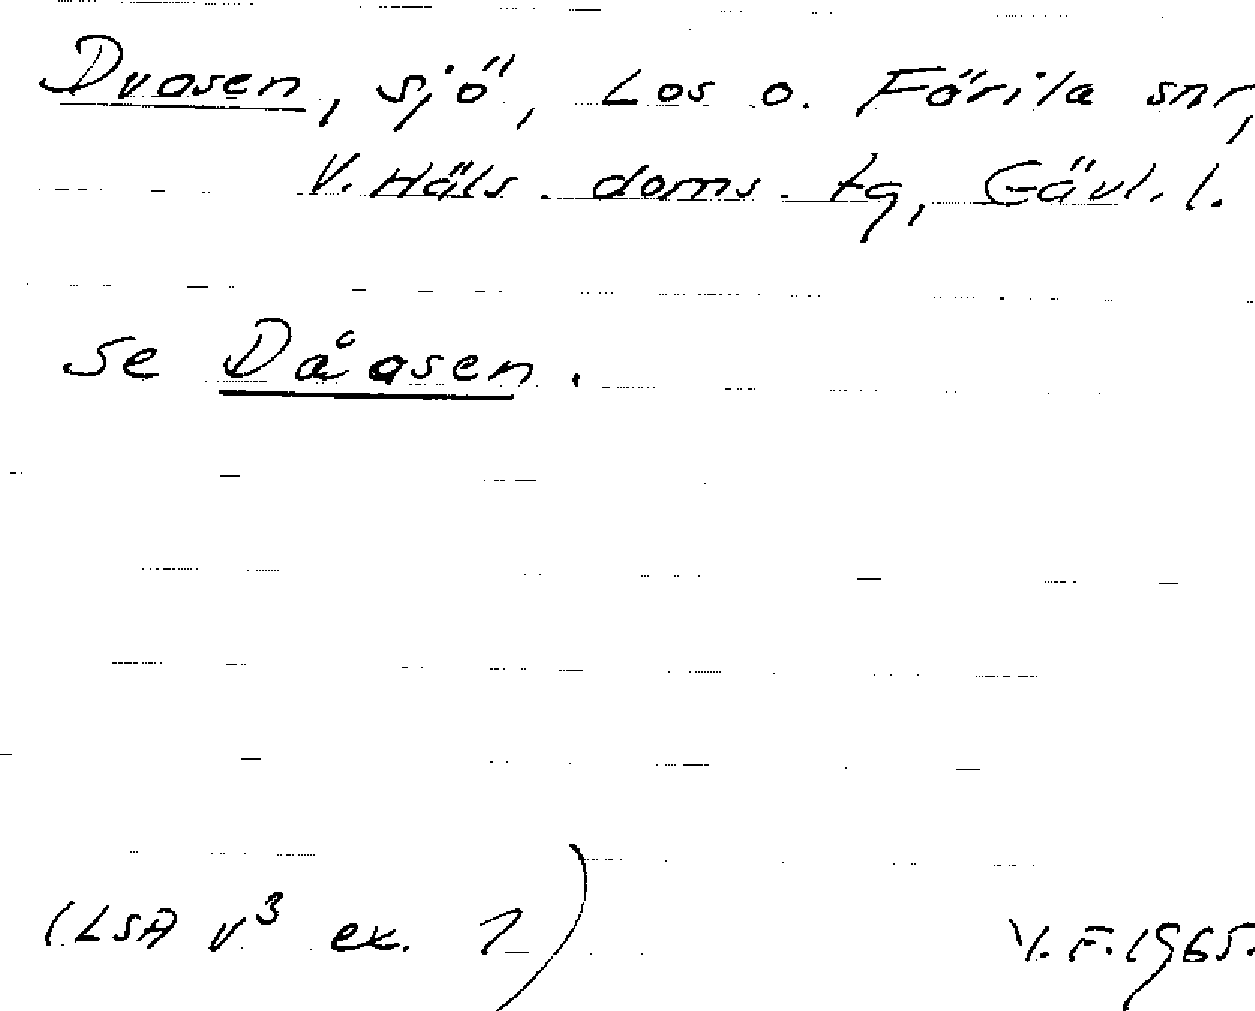 Dvasen, sjö, Los o. Färila snr,
V. Häls. doms. tg, Gävl. l.
Se Dåasen.
(LSA V3 ex. 1)
V. F. 1965.